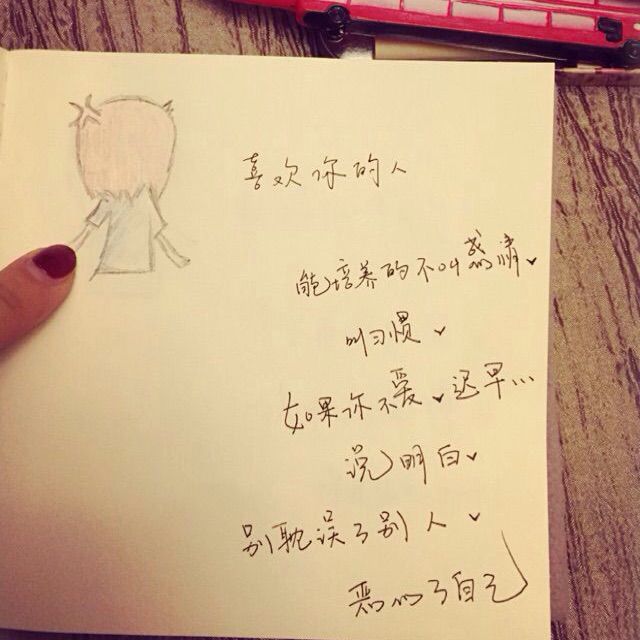 喜欢你的人
能培养的不叫感情、
叫习惯、
如果你不爱、迟早...
说明白、
别耽误了别人、
恶心了自己